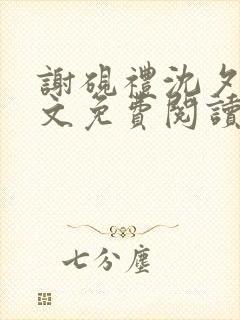 謝硯禮沈夕
文免費閱讀
七分塵